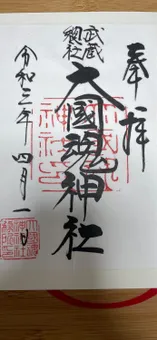 奉拝
武蔵
總社
大國魂神社
令和三年四月一日